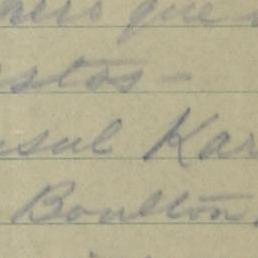 que
stos-
nsul Kar
Boulton,